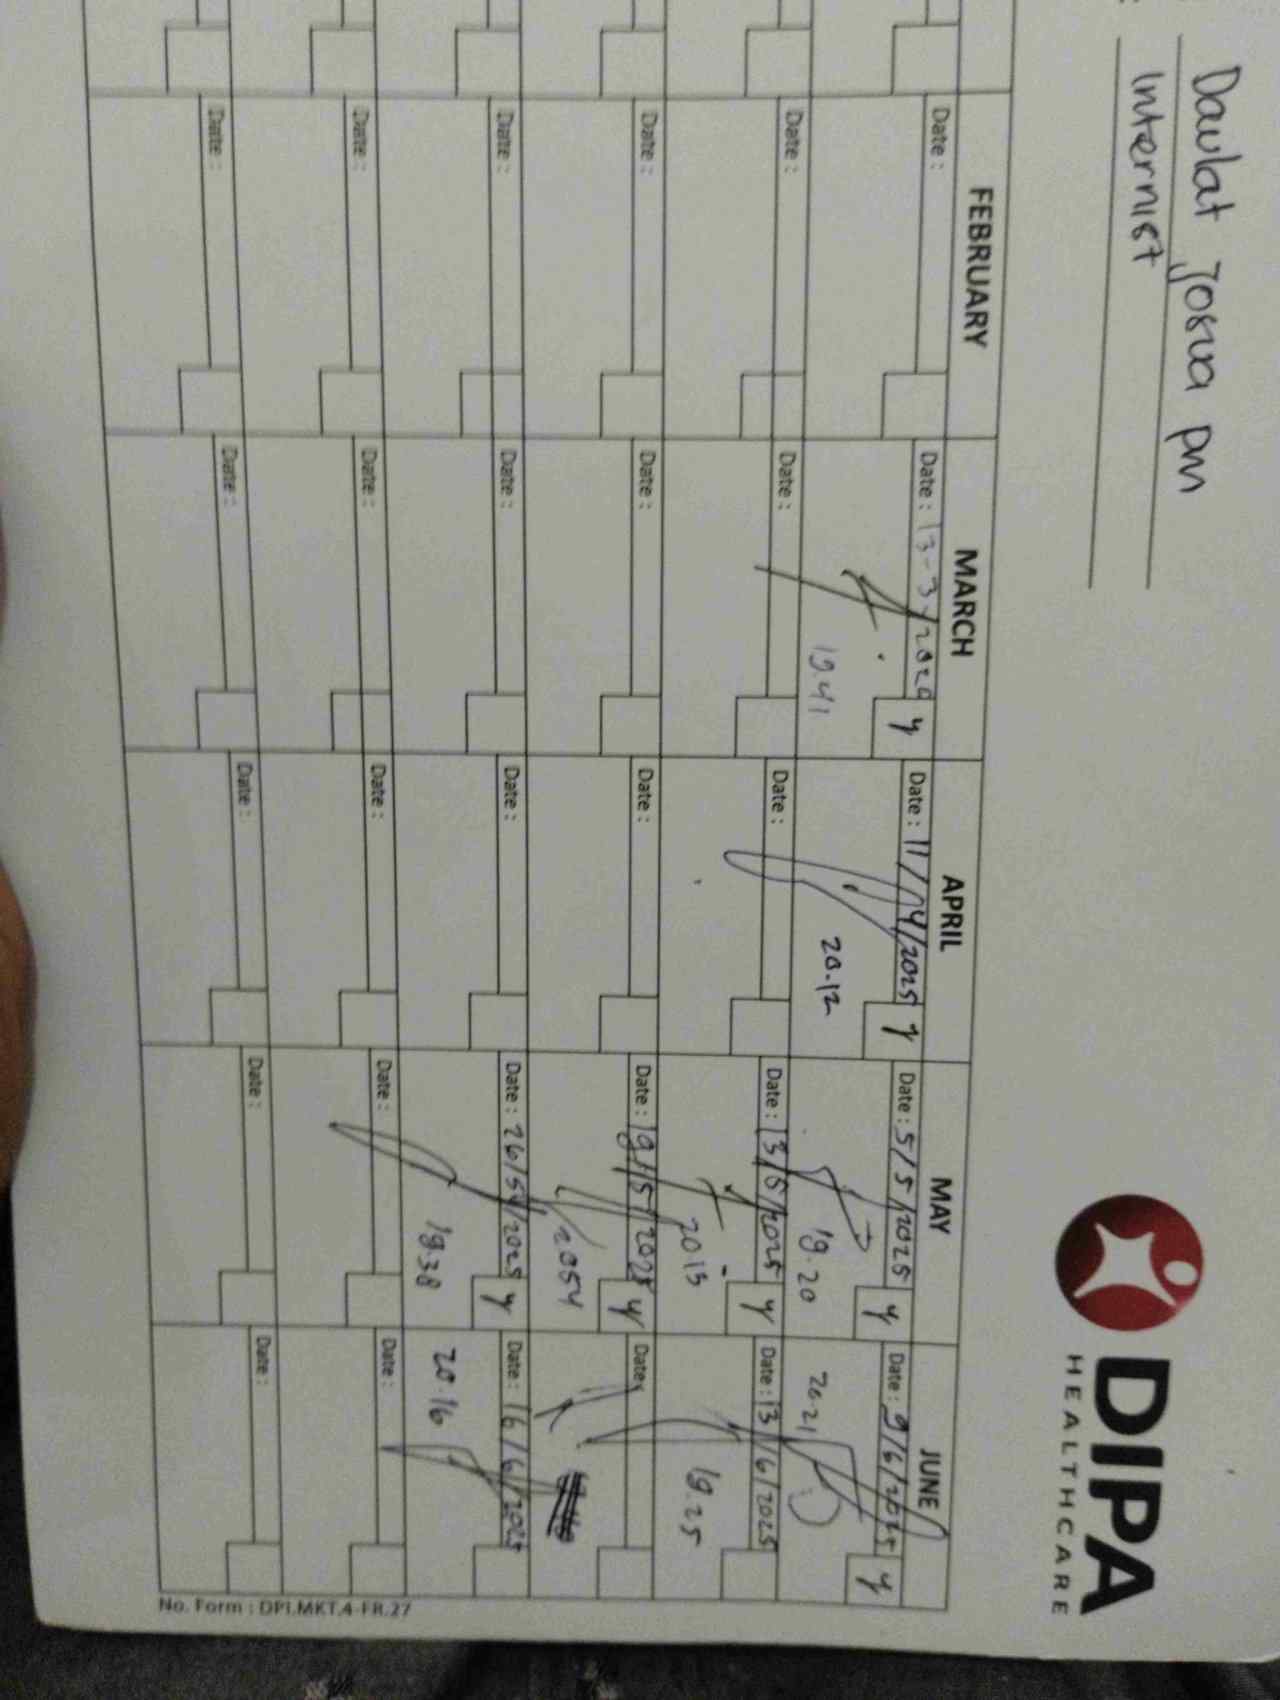 : Daulat Josua pm
: Internist
DIPA
HEALTHCARE
FEBRUARY MARCH APRIL MAY JUNE
Date : Date : 13-3-/ Date : 11/04/2025 y Date : 5/5/2025 y Date : 9/6/2025 y
y
19.41 20.12 19.20 20.21
Date : Date : Date : Date : 13/5/2025 y Date : 13/6/2025
2015 19.25
Date : Date : Date : Date : 19/5/2025 y Date :
2054
Date : Date : Date : Date : 26/5/2025 y Date : 16/6/2025
19.38 20.16
Date : Date : Date : Date : Date :
Date : Date : Date : Date : Date :
No. Form : DPI.MKT.4-FR.27